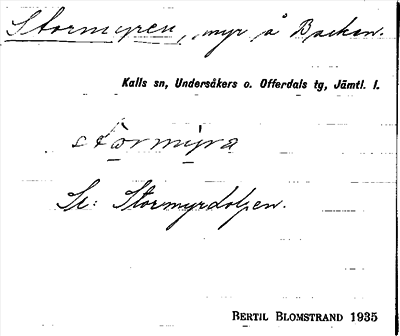 Stormyren, myr å Backen.
Kalls sn, Undersåkers o. Offerdals tg, Jämtl. l.
stormyra
Se: Stormyrdolpen.
BERTIL BLOMSTRAND 1935